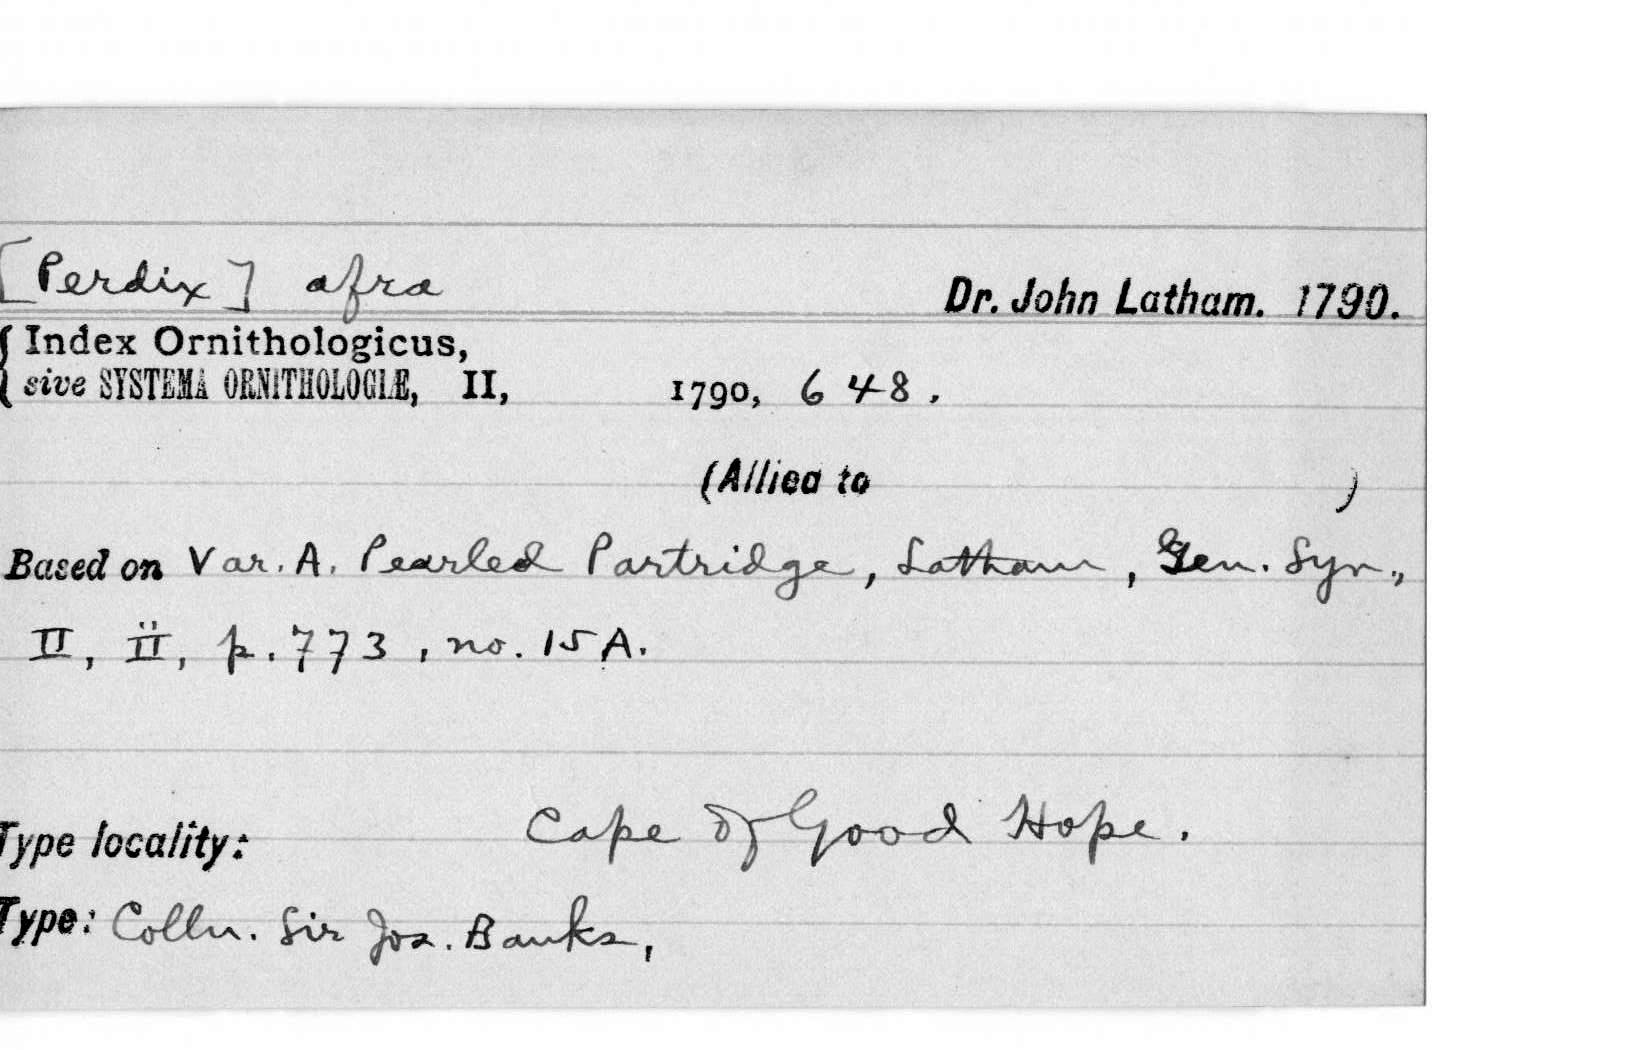 [Perdix] afra
Dr. John Latham. 1790.
{ Index Ornithologicus,
sive SYSTEMA ORNITHOLOGIÆ, II, 1790, 648.
(Allied to )
Based on Var. A. Pearled Partridge, Latham, Gen. Syn.,
II, ii, p. 773, no. 15A.
Type locality: Cape of Good Hope.
Type: Colln. Sir Jos. Banks,